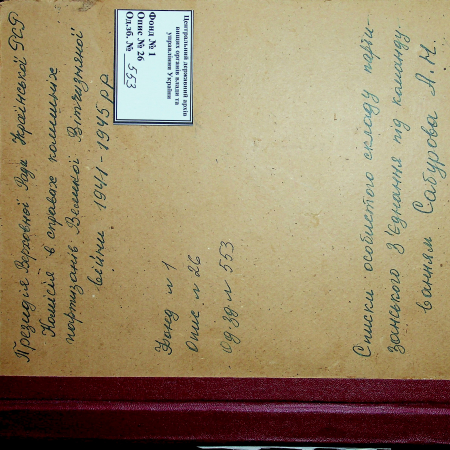 Президія Верховної Ради Української РСР
Комісія в справах колишніх
партизанів Великої Вітчизняної
війни 1941-1945 рр
Центральний державний архів
вищих органів влади та
управління України
Фонд № 1
Опис № 26
Од.зб. № 553
Фонд № 1
опис № 26
од. зб № 553
Списки особистого складу парти-
занського з'єднання під команду-
ванням Сабурова А. М.